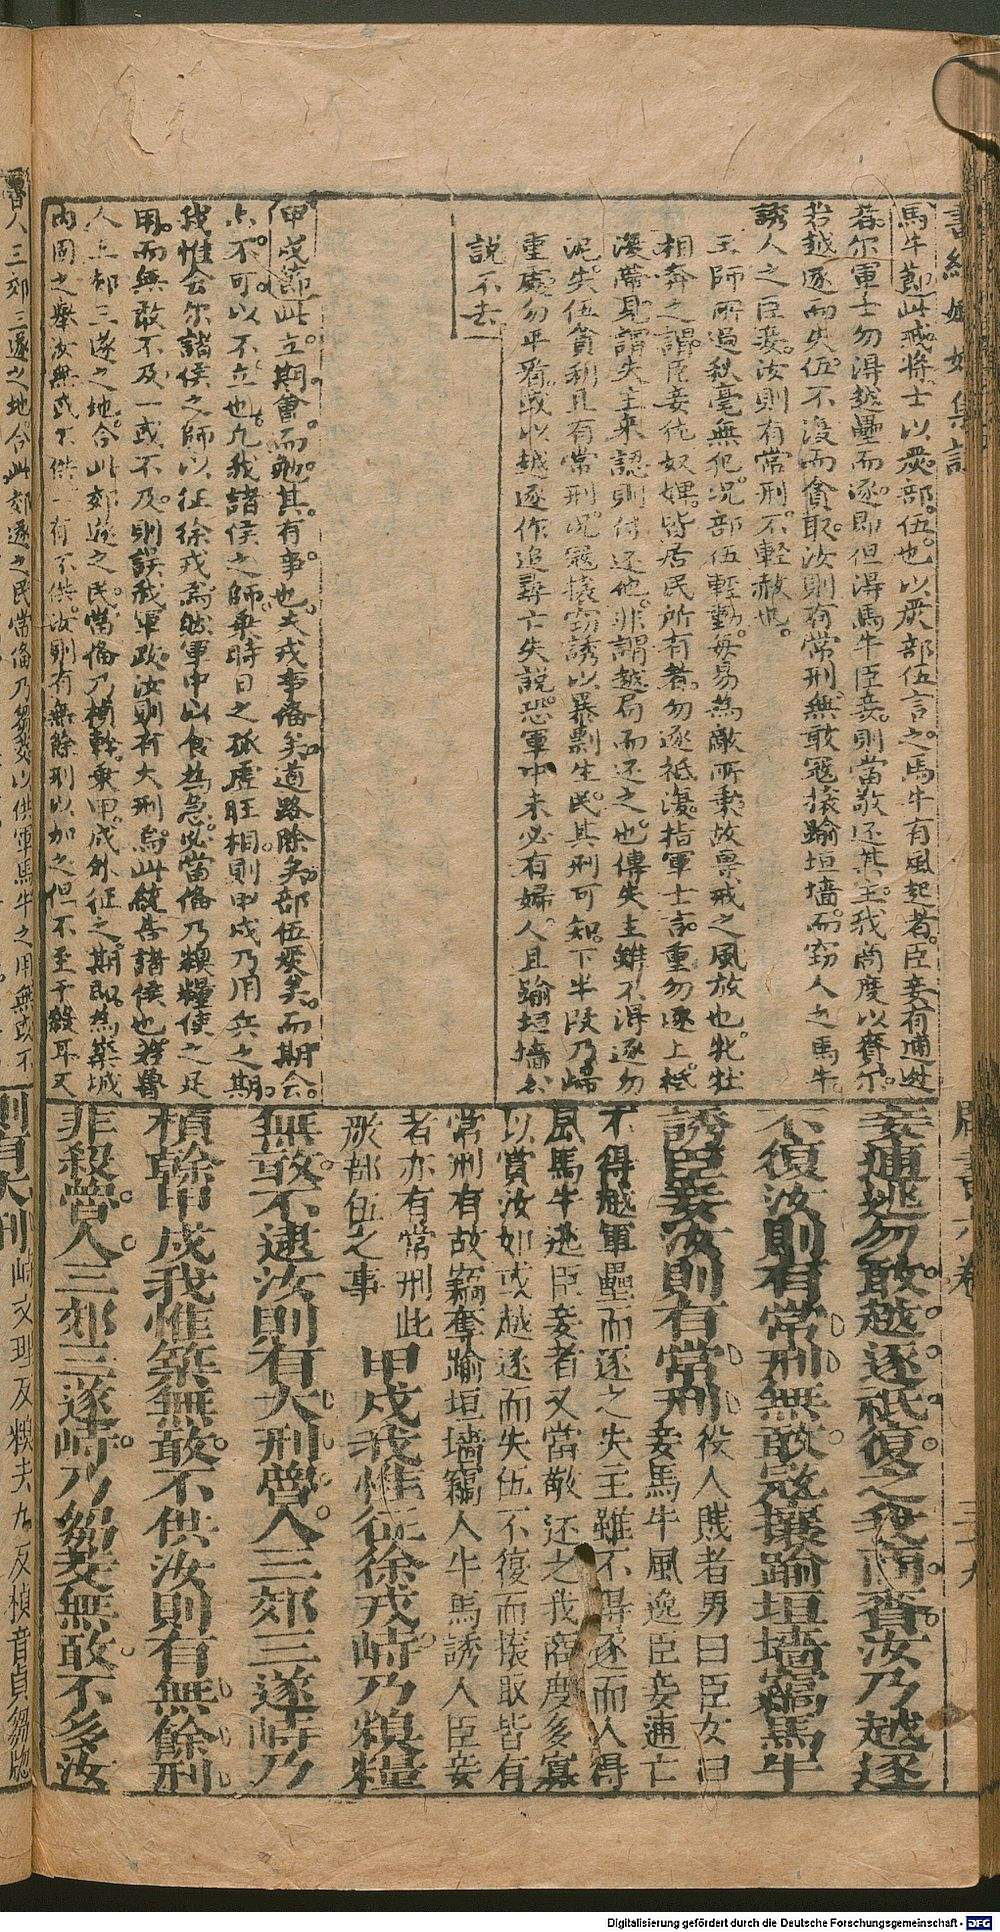 馬牛節此戒將士以眾部伍也以眾部伍言之馬牛有風起者臣妾有逋逃
者尔軍士勿得越壘而逐即但得馬牛臣妾則當敬还其主我啇度以賚尔
若越逐而失伍不復而貪取汝則有常刑無敢寇攘踰垣墻而窃人之馬牛
誘人之臣妾汝則有常刑不輕赦也
王師所過秋毫無犯况部伍輕動每易為敵所乗故禀戒之風放也牝牡
相奔之謂臣妾化奴婢皆居民所有者勿逐祗復指軍士言重勿逐上祗
復帶見謂失主來認則付还他非謂越局而还之也傳失主雖不得逐勿
泥失伍貪利且有常刑况寇攘窃誘以暴剽生民其刑可知下半段乃峙
重處勿平看或以越逐作追尋亡失說恐軍中未必有婦人且踰垣墻公
說不去
甲戍節此立期會而勉其有事也夫戎事俻矣道路除矣部伍嚴矣而期会
亦不可以不立也九我諸侯之師乗時日之孤虚旺相則甲戍乃用兵之期
我惟会尔諸侯之師以征徐戎焉然軍中以食為急必當俻乃糗糧使之足
用而無敢不及一或不及則誤我軍政汝則有大刑焉此統告諸侯也若魯
人三郊三遂之地合此郊遂之民當俻乃楨幹乗甲戍外征之期即為築城
内固之舉汝無或不供一有不供汝則有無餘刑以加之但不至于殺耳又
魯人三郊三遂之地合此郊遂之民當俻乃芻茭以供軍馬牛之用無或不
妾逋逃勿敢越逐祗復之我啇賚汝乃越逐
不復汝則有常刑無敢寇攘踰垣墻竊馬牛
誘臣妾汝則有常刑役人賎者男曰臣女曰
妾馬牛風逸臣妾逋亡
不得越軍壘而逐之失主雖不得逐而人得
風馬牛逃臣妾者又當敬还之我啇度多寡
以賞汝如或越逐而失伍不復而攘取皆有
常刑有故竊奪踰垣墻竊人牛馬誘人臣妾
者亦有常刑此
嚴部伍之事
甲戍我惟征徐戎峙乃糗糧
無敢不逮汝則有大刑魯人三郊三遂峙乃
楨榦甲戍我惟築無敢不供汝則有無餘刑
非殺魯人三郊三遂峙乃芻茭無敢不多汝
則有大刑峙丈理反糗夫九反楨音貞芻牕
Digitalisierung gefördert durch die Deutsche Forschungsgemeinschaft - DFG